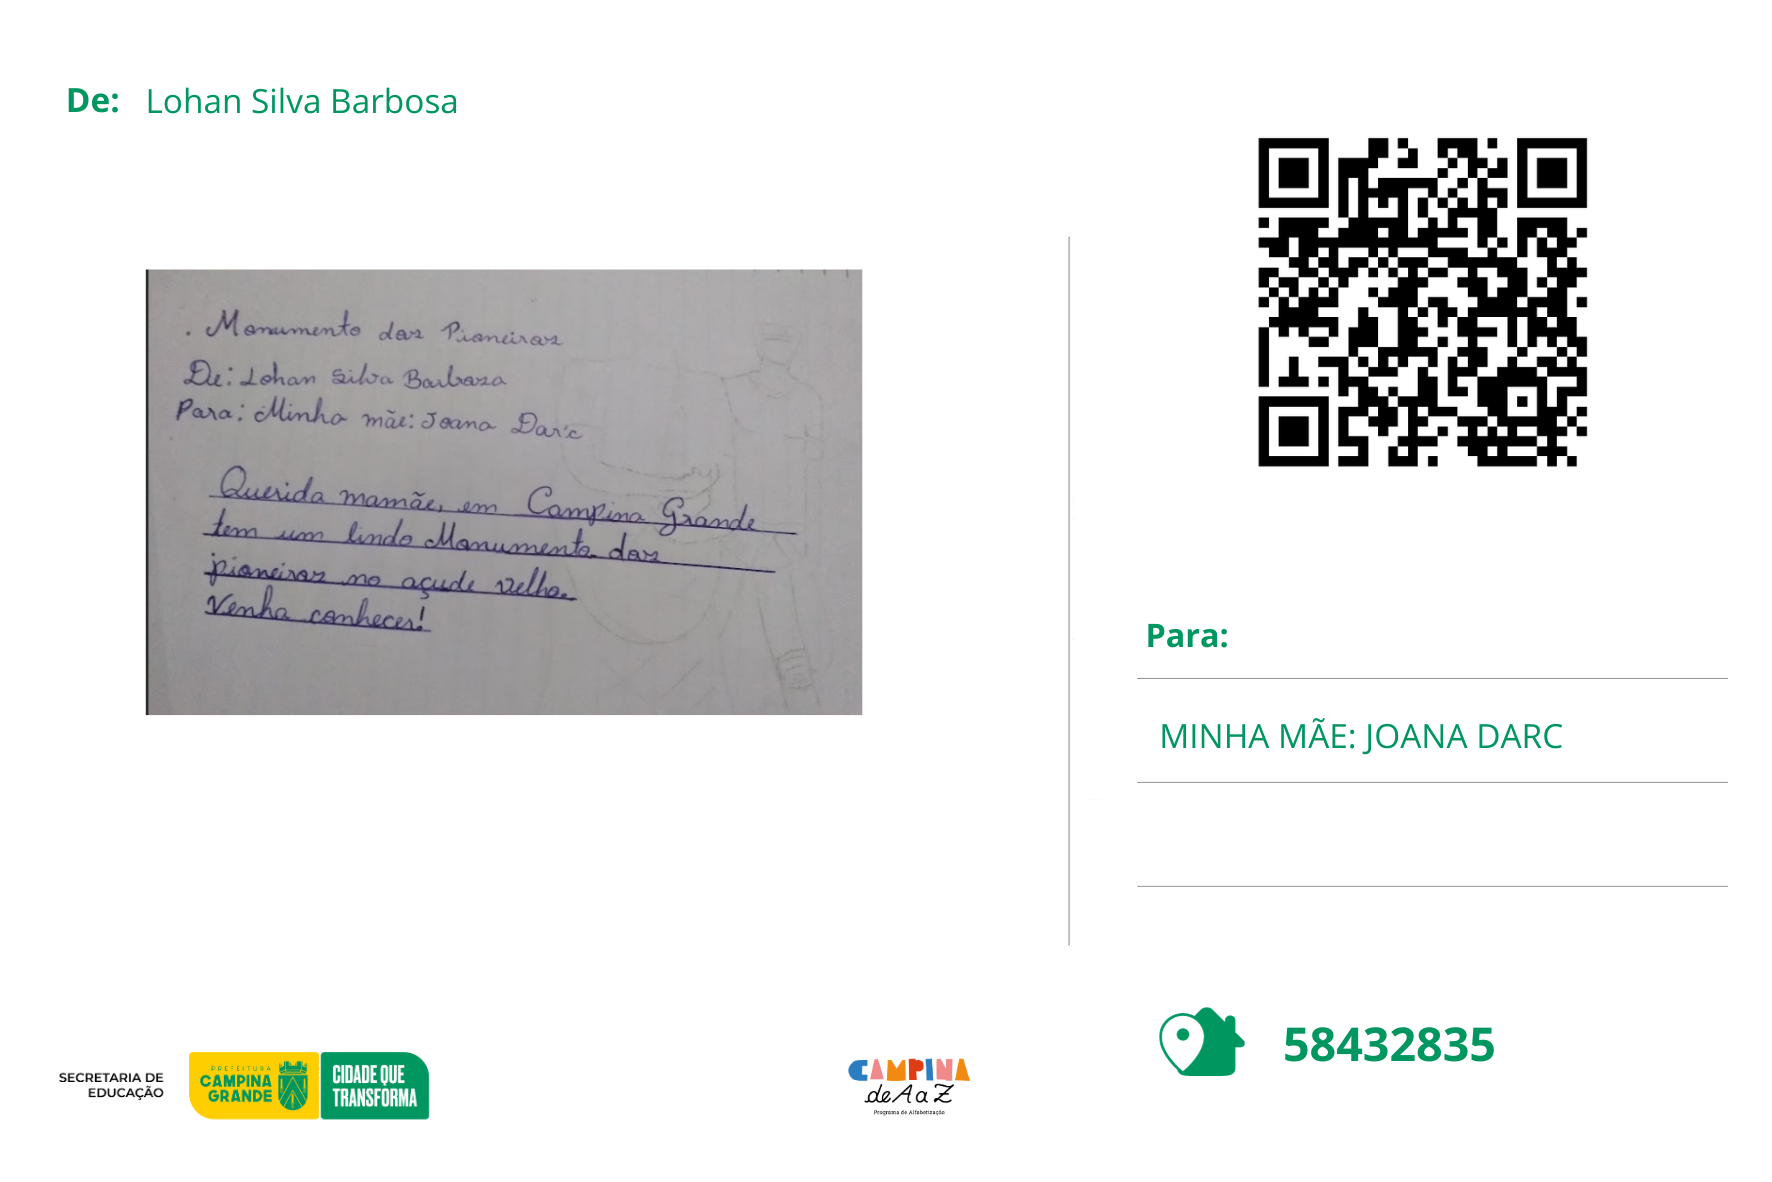 De: Lohan Silva Barbosa
. Monumento dos Pioneiros
De: Lohan Silva Barbosa
Para: Minha mãe: Joana Dar'c
Querida mamãe, em Campina Grande
tem um lindo Monumento dos
pioneiros no açude velho.
Venha conhecer!
Para:
MINHA MÃE: JOANA DARC
58432835
SECRETARIA DE
EDUCAÇÃO
PREFEITURA
CAMPINA
GRANDE
CIDADE QUE
TRANSFORMA
CAMPINA
de A a Z
Programa de Alfabetização